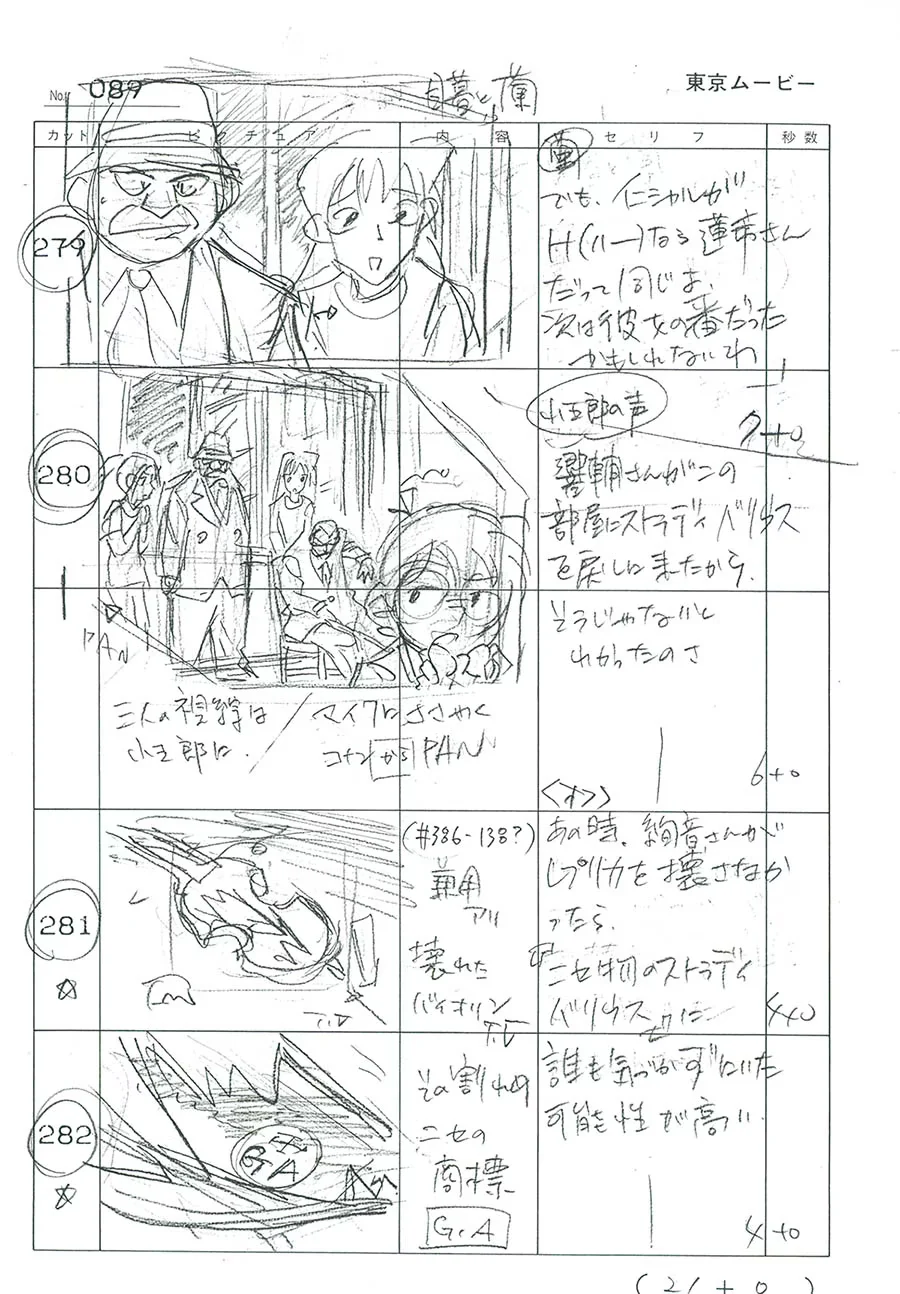 No. 089
目暮と蘭
東京ムービー
カット
ピクチュア
内容
セリフ
秒数
279
蘭
でも、イニシャルが
H(ハー)なら蓮希さん
だって同じよ、
次は彼女の番だった
かもしれないわ
7+0
280
PAN
三人の視線は
小五郎に.
マイクにささやく
コナンからPAN
小五郎の声
響輔さんがこの
部屋にストラディバリウス
を戻しに来たから、
そうじゃないと
わかったのさ
6+0
281
(#386-138?)
兼用
アリ
壊れた
バイオリン
T.U
<オフ>
あの時、絢音さんが
レプリカを壊さなか
ったら、
ニセ物のストラディ
バリウスだと
4+0
282
その割れ目
ニセの
商標
G.A
誰も気づかずにいた
可能性が高い.
4+0
(21+0)